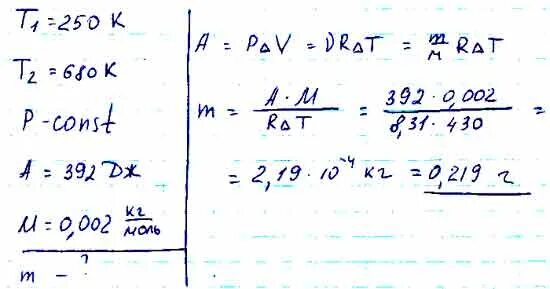 T₁ = 250 К
T₂ = 680 К
P - const
A = 392 Дж
M = 0,002 кг/моль
m - ?
A = PΔV = νRΔT = m/M RΔT
m = A · M / RΔT = 392 · 0,002 / 8,31 · 430 =
= 2,19 · 10⁻⁴ кг = 0,219 г